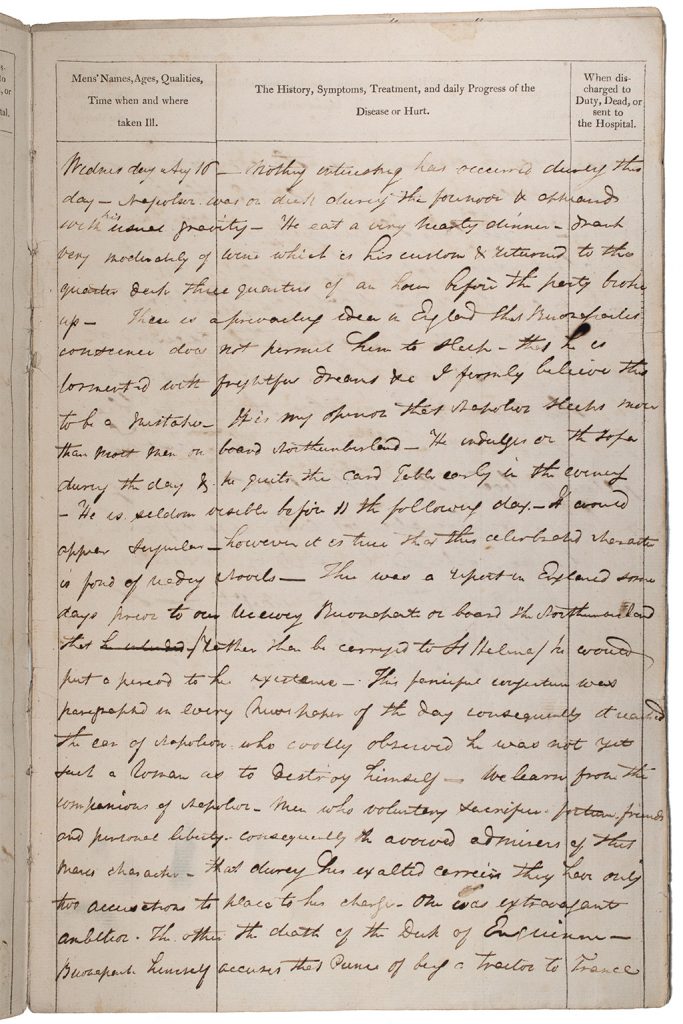 Mens' Names, Ages, Qualities,
Time when and where
taken Ill.
The History, Symptoms, Treatment, and daily Progress of the
Disease or Hurt.
When dis-
charged to
Duty, Dead, or
sent to
the Hospital.
Wednesday Aug 16 – Nothing interesting has occurred during this
day – Napoleon was on deck during the forenoon &
with his usual gravity – He eat a very hearty dinner – drank
very moderately of wine which is his custom & returned to the
quarter deck three quarters of an hour before the party broke
up – There is a prevailing idea in England that Buonapartes
conscience does not permit him to sleep – that he is
tormented with frightful dreams &c I firmly believe this
to be a mistake – It is my opinion that Napoleon sleeps more
than most men on board Northumberland – He indulges on the Sofa
during the day & he quits the card Table early in the evening
– He is seldom visible before 11 the following day – It would
appear singular – however it is true that this celebrated character
is fond of reading Novels – There was a report in England some
days prior to our receiving Buonaparte on board the Northumberland
that he intended / rather than be carryed to St Helena / he would
put a period to his existence – This fanciful conjecture was
paragraphd in every Newspaper of the day consequently it reached
the ear of Napoleon who coolly observed he was not yet
such a Roman as to destroy himself – We learn from the
companions of Napoleon – Men who voluntary sacrifice fortune, friends
and personal liberty – consequently the avowed admirers of this
mans character – that during his exalted carreer they have only
two accusations to place to his charge – One was extravagant
ambition – The other the death of the Duk of Enguienne –
Buonaparte himself accuses that Prince of being a traitor to France